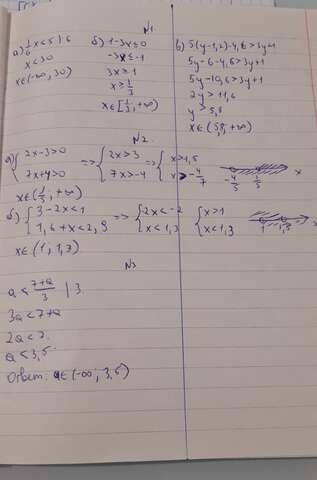 N1
а) 1/6 x < 5 | 6
x < 30
x∈(-∞; 30)
б) 1-3x ≤ 0
-3x ≤ -1
3x ≥ 1
x ≥ 1/3
x∈[1/3; +∞)
в) 5(y-1,2)-4,6 > 3y+1
5y-6-4,6 > 3y+1
5y-10,6 > 3y+1
2y > 11,6
y > 5,8
x∈(5,8; +∞)
N2
а) {2x-3>0 => {2x>3 => {x>1,5
{7x+4>0 {7x>-4 {x>-4/7
x
x∈( ; +∞)
б) {3-2x<1 => {-2x<-2 {x>1
{1,6+x<2,9 {x<1,3 {x<1,3
1 1,3 x
x∈(1; 1,3)
N3
a < (7+a)/3 | 3
3a < 7+a
2a < 7
a < 3,5
Ответ: a∈(-∞; 3,5)